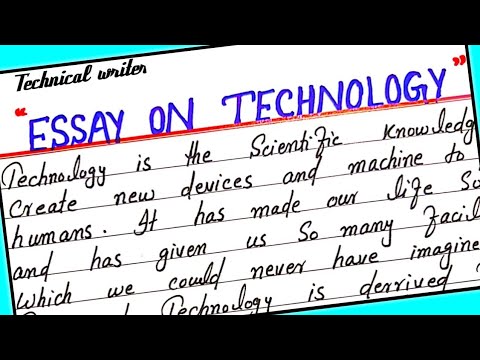 Technical writer
"ESSAY ON TECHNOLOGY"
Technology is the Scientific Knowledg
Create new devices and machine to
humans. It has made our life So
and has given us So many facil
which we could never have imagine
Technology is derrived